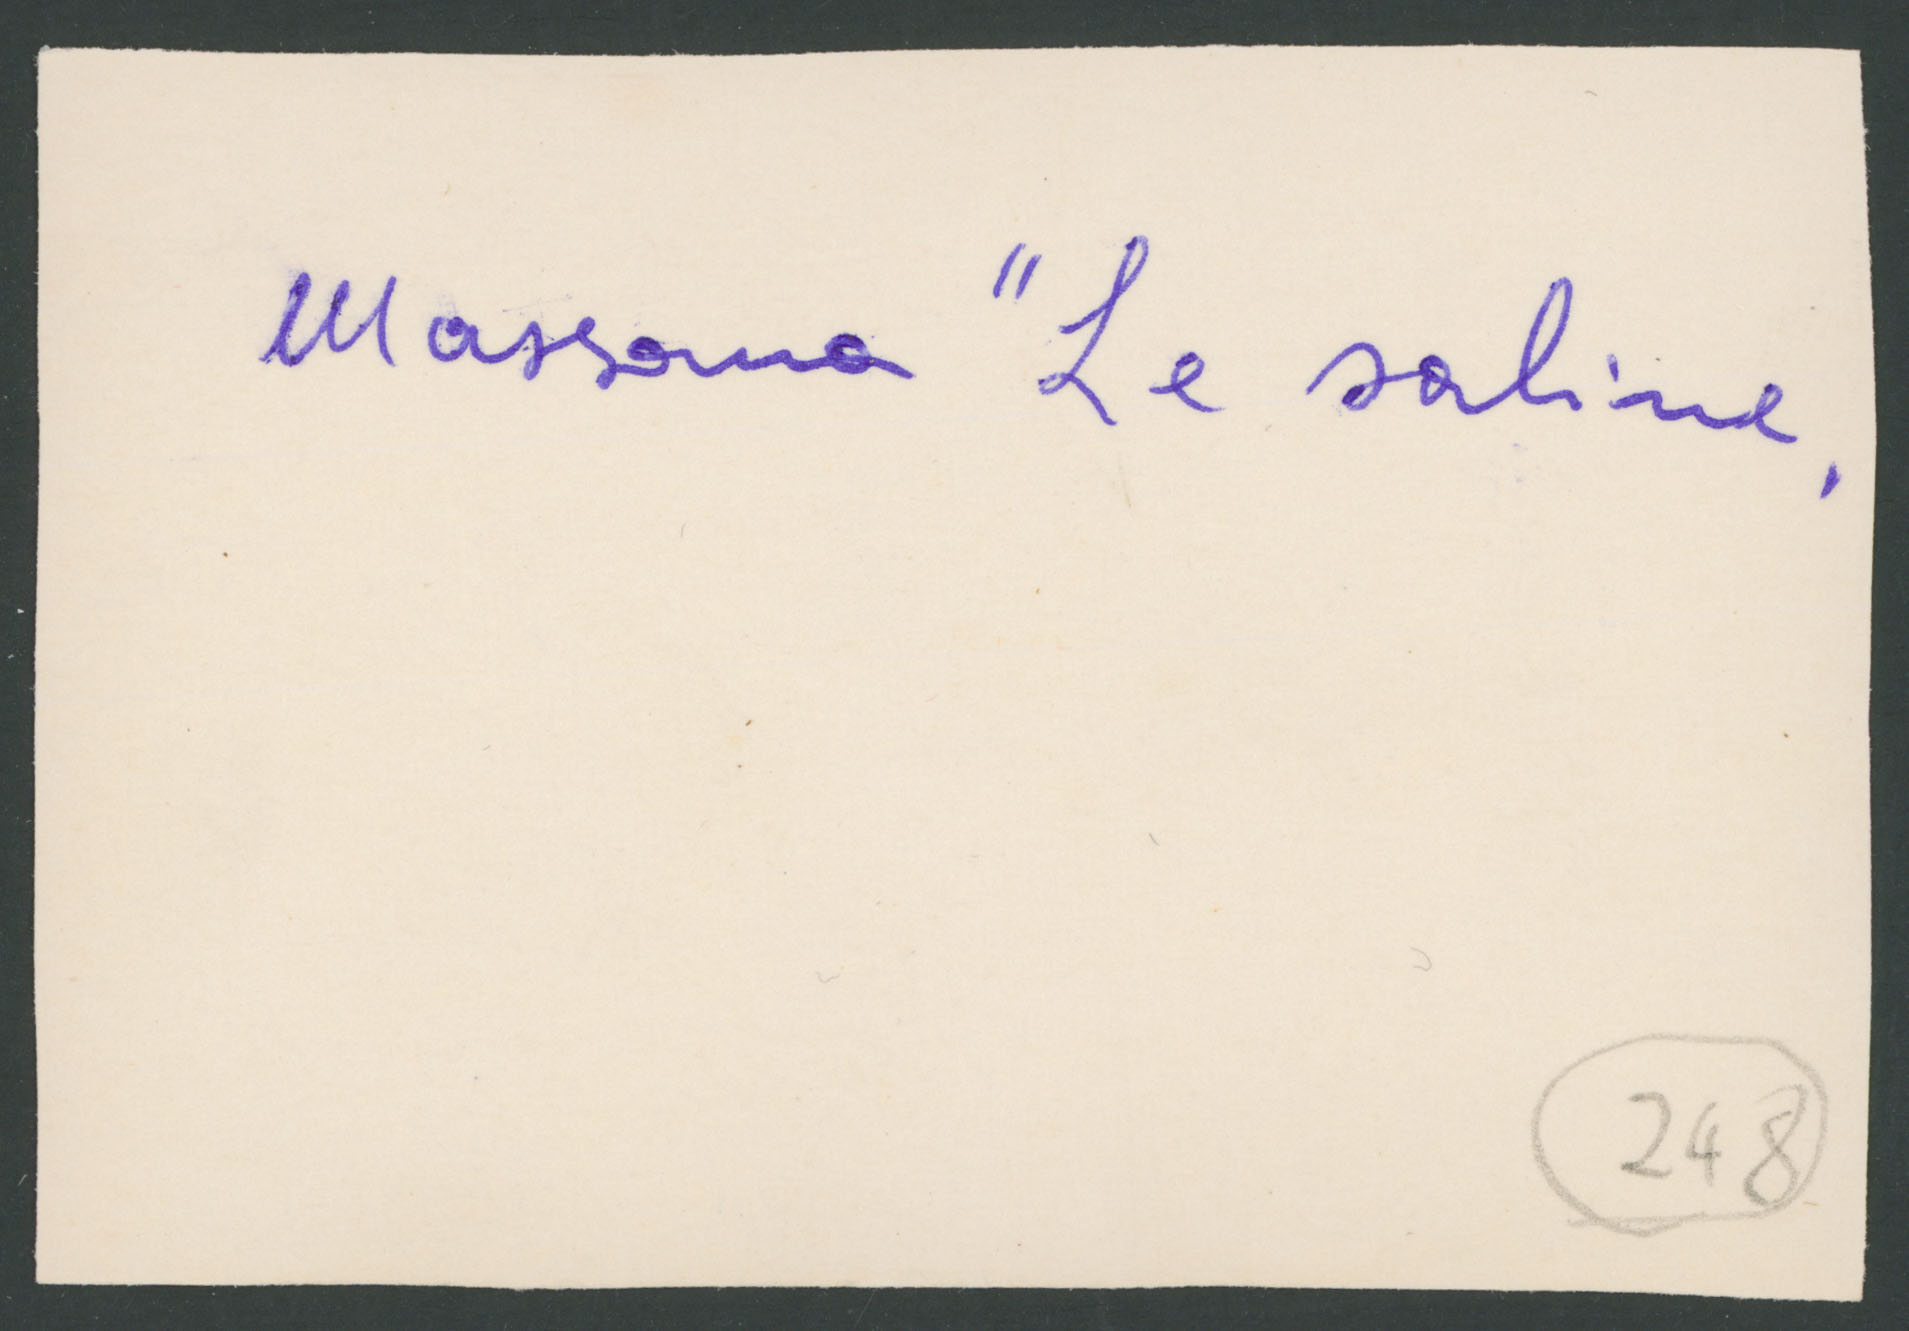 Massaua "Le saline,
248